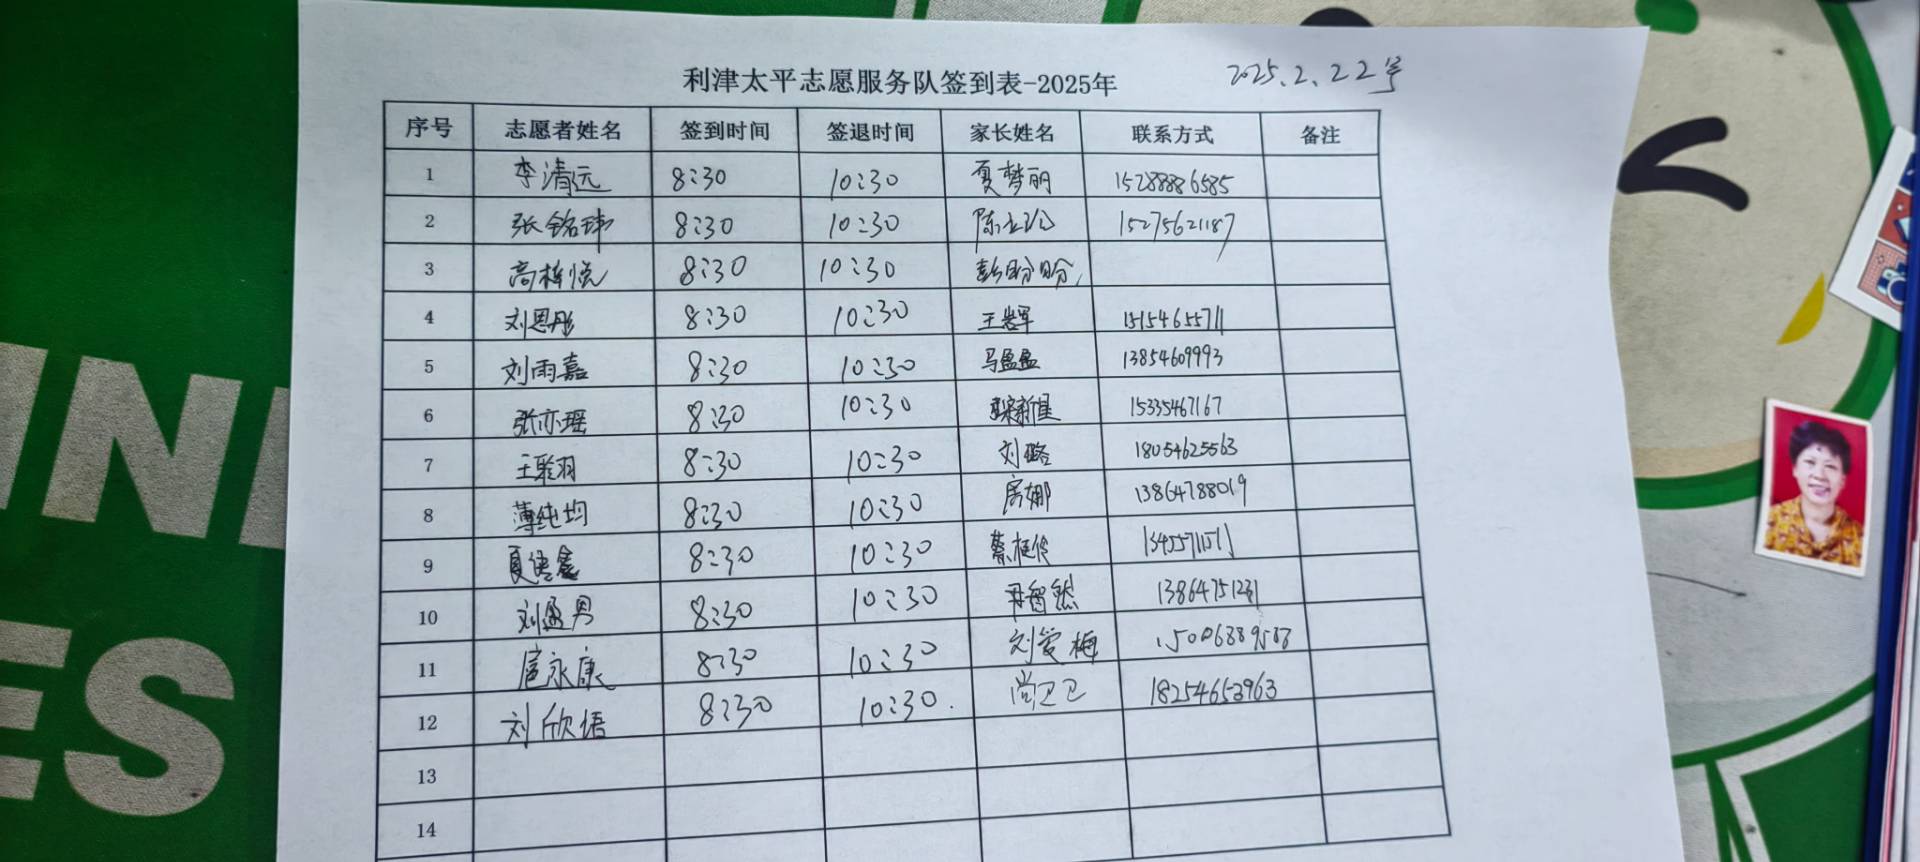 利津太平志愿服务队签到表-2025年
2025.2.22号
序号 志愿者姓名 签到时间 签退时间 家长姓名 联系方式 备注
1 李清远 8:30 10:30 夏梦丽 15288886585
2 张铭玮 8:30 10:30 15275621187
3 高梓悦 8:30 10:30 彭盼盼
4 刘思彤 8:30 10:30 王岩军 15154655711
5 刘雨嘉 8:30 10:30 马盈盈 13854609993
6 张亦瑶 8:30 10:30 15335467167
7 8:30 10:30 刘璐 18054625563
8 薄纯均 8:30 10:30 房娜 13864788019
9 8:30 10:30
10 8:30 10:30
11 扈永康 8:30 10:30 刘爱梅
12 刘欣语 8:30 10:30. 尚卫卫 18254653963
13
14
ES